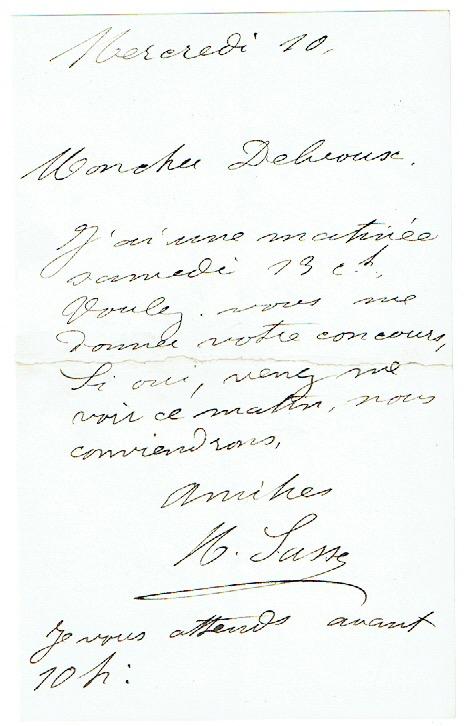 Mercredi 10.
Mon cher Debroux.
J'ai une matinée
samedi 13 ct.
Voulez-vous me
donner votre concours,
Si oui, venez me
voir ce matin, nous
conviendrons.
Amitiés
M. Sasse
Je vous attends avant
10 h: